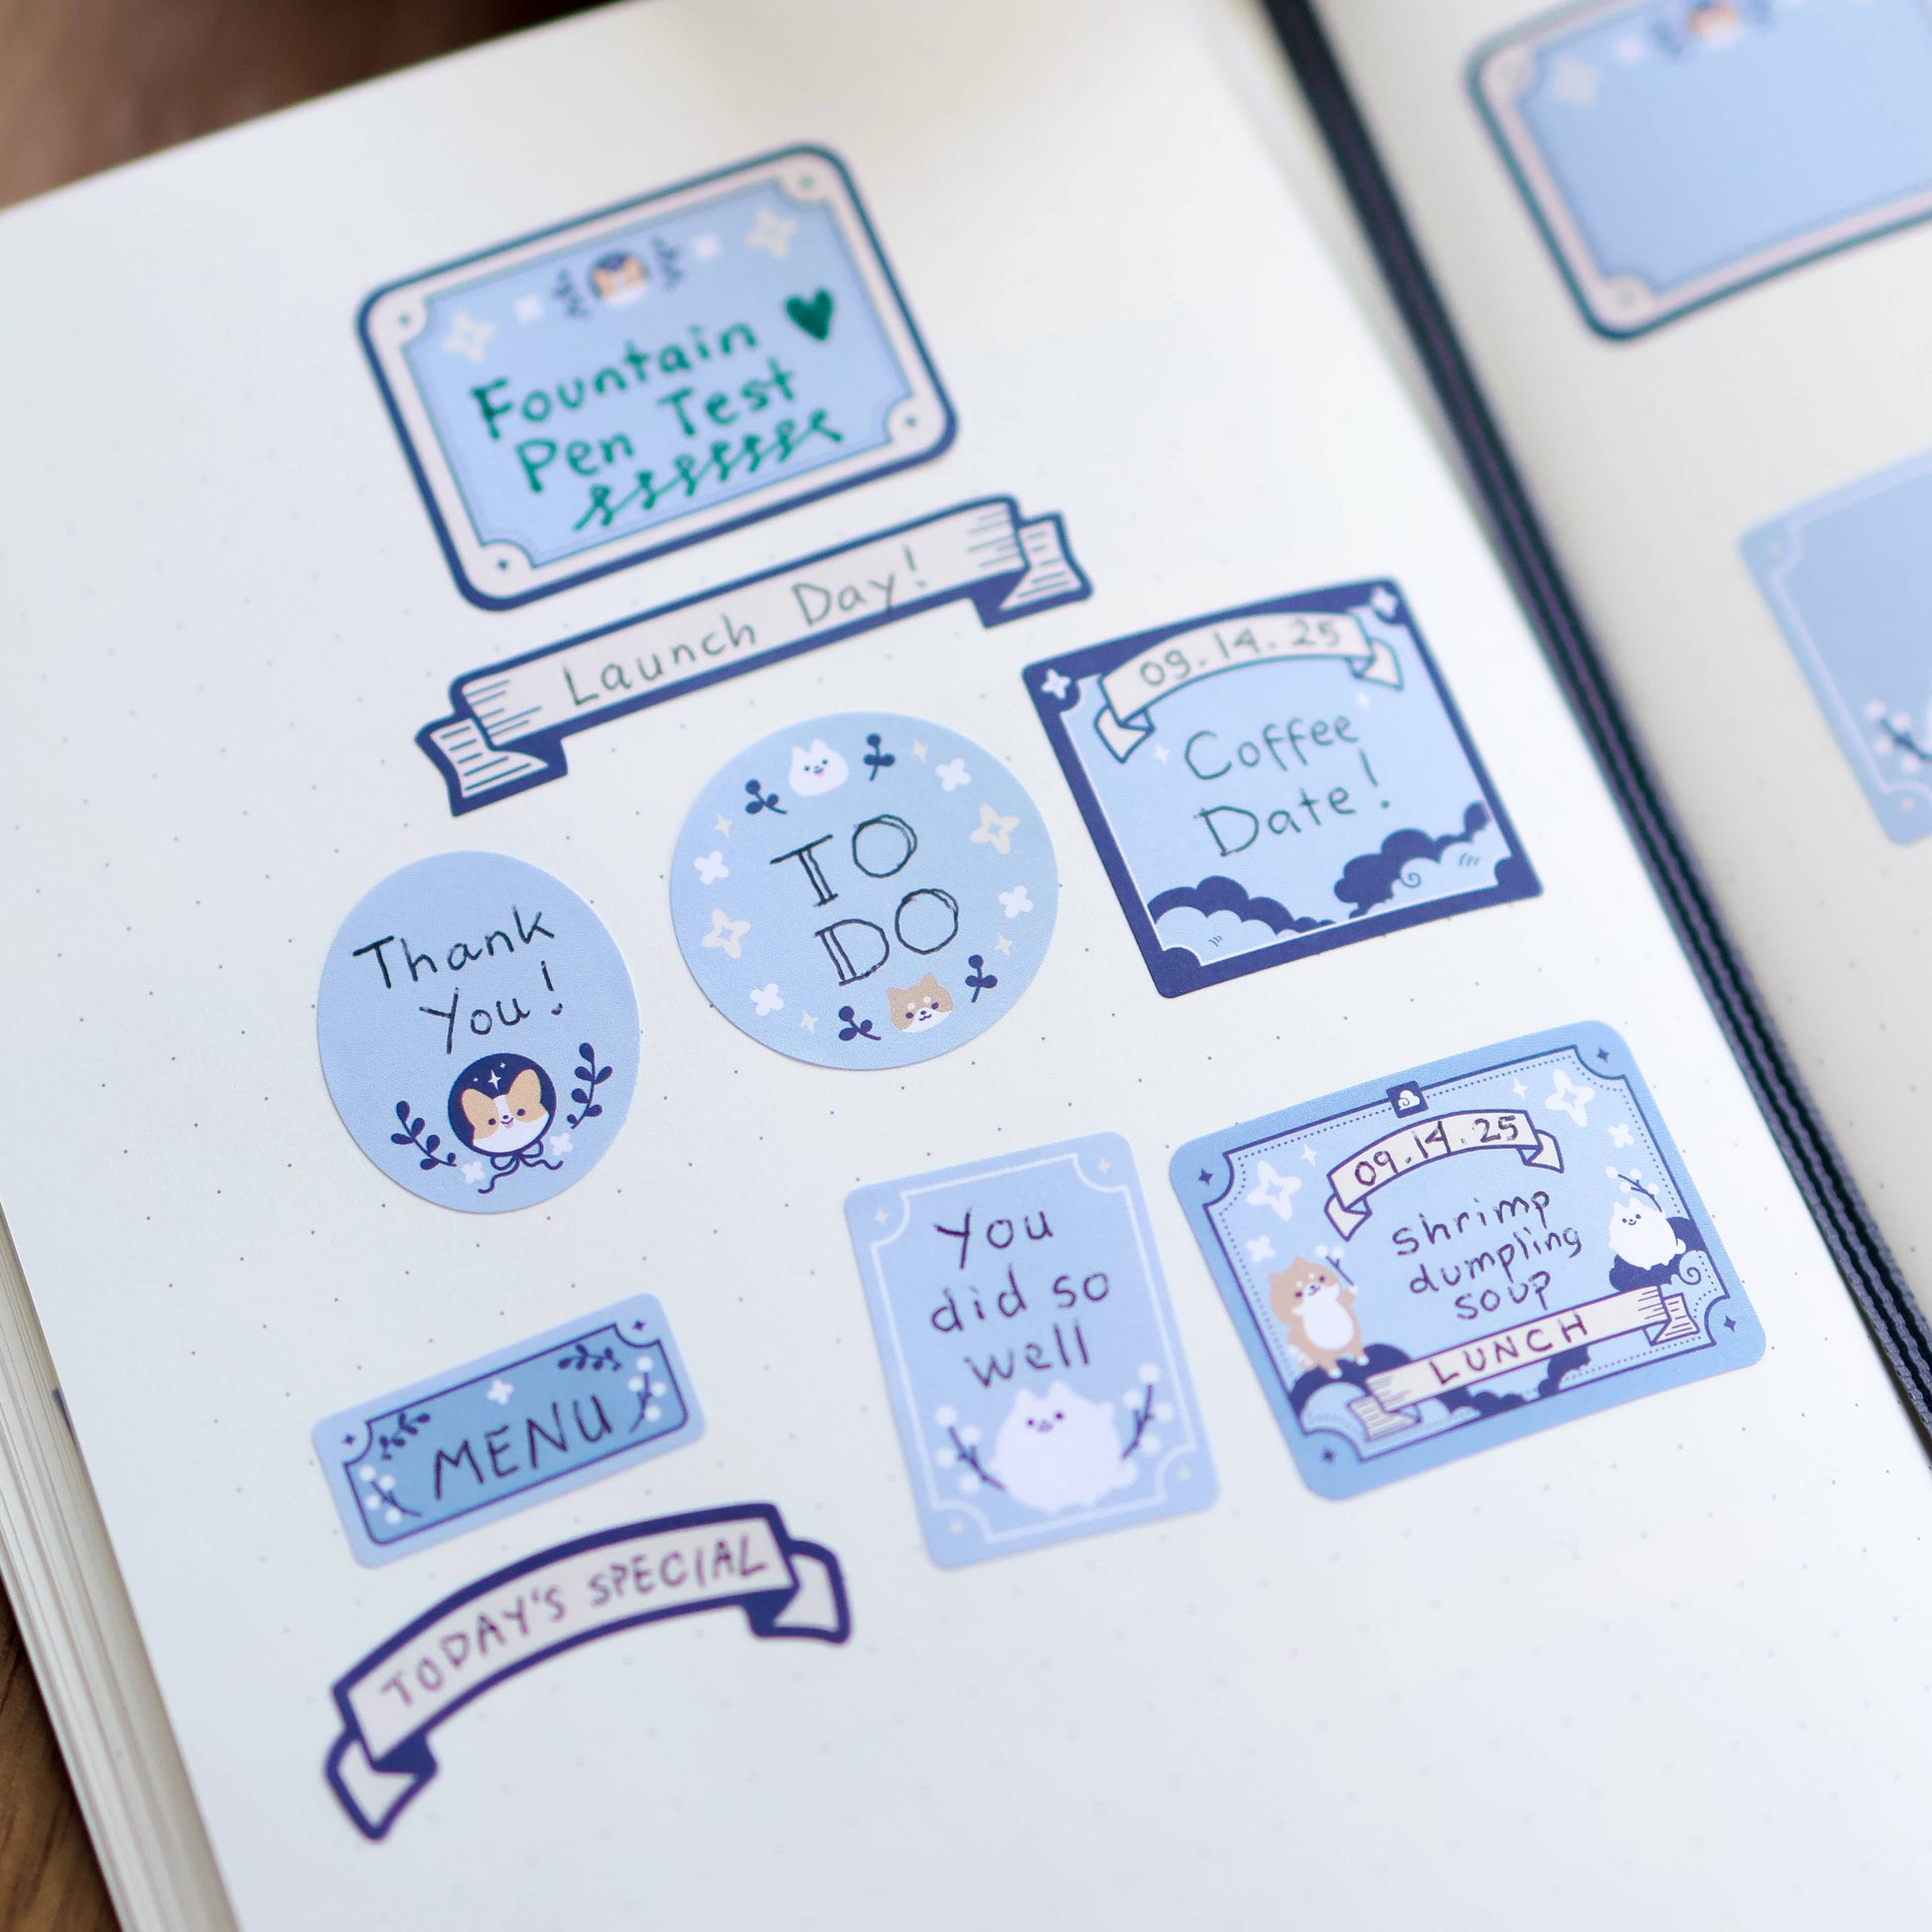 Fountain
Pen Test
Launch Day!
09.14.25
Coffee
Date!
TO
DO
Thank
You!
09.14.25
Shrimp
dumpling
soup
LUNCH
You
did so
well
MENU
TODAY'S SPECIAL